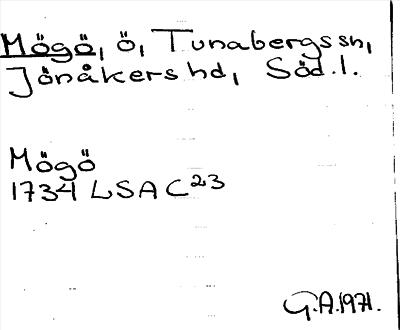 Mögö, ö, Tunabergs sn,
Jönåkers hd, Söd.l.
Mögö
1734 LSA C23
G.A.1971.